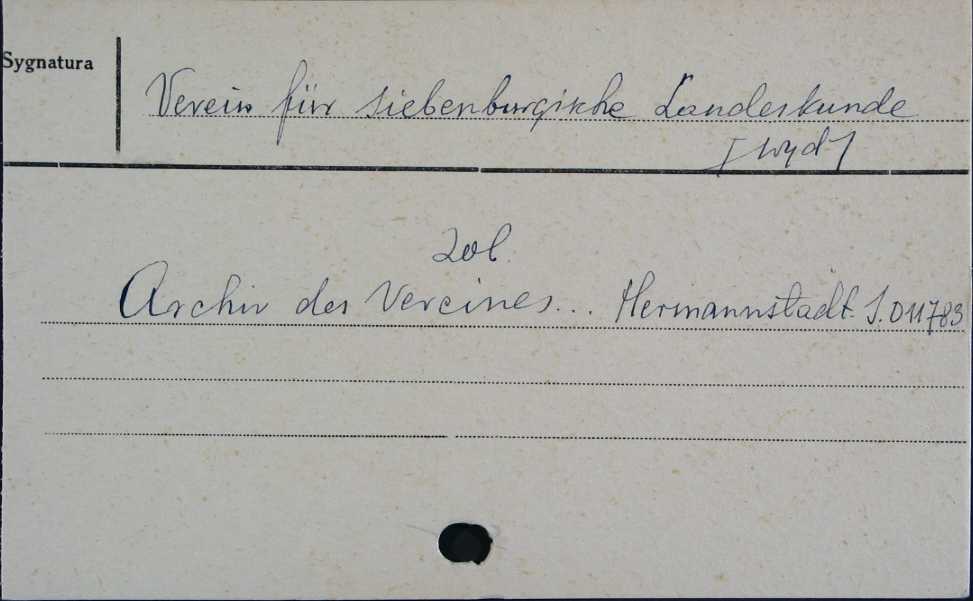 Sygnatura
Verein für siebenburgische Landeskunde
[wyd]
Zob.
Archiv des Vereines... Hermannstadt. S.011783